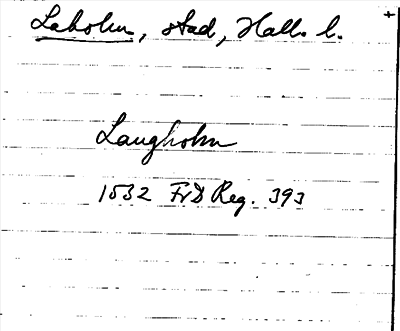 Laholm, stad, Hall. l.
Laugholm
1532 FrD Reg. 393